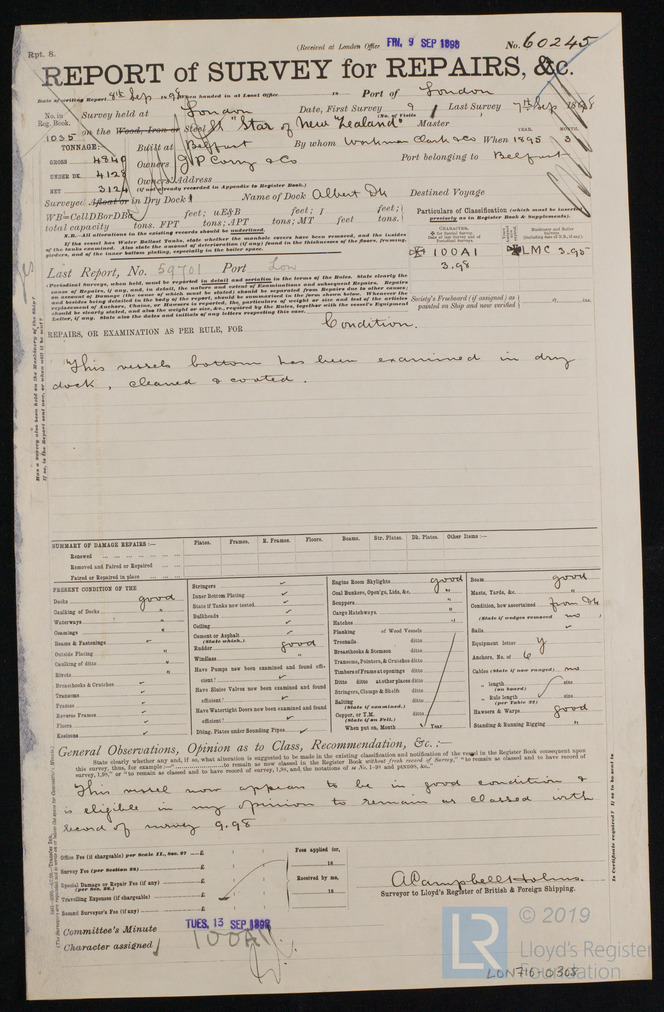 Rpt. 8.
(Received at London Office FRI. 9 SEP 1898
No. 60245
REPORT of SURVEY for REPAIRS, &c.
Date of writing Report 8th Sep 1898 When handed in at Local Office 18 Port of London
No. in Reg. Book. Survey held at London Date, First Survey 9 Last Survey 7th Sep 1898
(No. of Visits 1)
1035 on the Wood, Iron or Steel St "Star of New Zealand" Master
TONNAGE: Built at Belfast By whom Workman Clark & Co When 1895 3
YEAR. MONTH.
GROSS 4840 Owners J P Corry & Co Port belonging to Belfast
UNDER DK. 4128 Owners' Address
(if not already recorded in Appendix to Register Book.)
NET 3124
Surveyed Afloat or in Dry Dock Name of Dock Albert Dk Destined Voyage
WB=CellDBorDBa feet; uE&B feet; f feet;
total capacity tons. FPT tons; APT tons; MT feet tons.
N.B.—All alterations in the existing records should be underlined.
If the vessel has Water Ballast Tanks, state whether the manhole covers have been removed, and the insides
of the tanks examined. Also state the amount of deterioration (if any) found in the thicknesses of the floors, framing,
girders, and of the inner bottom plating, especially in the boiler space.
Particulars of Classification (which must be inserted
precisely as in Register Book & Supplements).
CHARACTER.
✠ 100A1 ✠ LMC 3.95
3.98
Last Report, No. 59701 Port Lon
(Periodical Surveys, when held, must be reported in detail and seriatim in the terms of the Rules. State clearly the
cause of Repairs, if any, and, in detail, the nature and extent of Examinations and subsequent Repairs. Repairs
on account of Damage (the cause of which must be stated) should be separated from Repairs due to other causes;
and besides being detailed in the body of the report, should be summarised in the form shown below.
State also the dates and initials of any letters respecting this case.
Society's Freeboard (if assigned) as
painted on Ship and now verified ft. ins.
REPAIRS, OR EXAMINATION AS PER RULE, FOR Condition.
This vessels bottom has been examined in dry
dock, cleaned & coated.
SUMMARY OF DAMAGE REPAIRS:— Plates. Frames. R. Frames. Floors. Beams. Str. Plates. Dk. Plates. Other Items:—
Renewed
Removed and Faired or Repaired
Faired or Repaired in place
PRESENT CONDITION OF THE
Decks good
Caulking of Decks "
Waterways "
Coamings "
Beams & Fastenings ✓
Outside Plating "
Caulking of ditto "
Rivets "
Breasthooks & Crutches ✓
Transoms ✓
Frames ✓
Reverse Frames ✓
Floors ✓
Keelsons ✓
Stringers ✓
Inner Bottom Plating ✓
State if Tanks now tested ✓
Bulkheads ✓
Ceiling ✓
Cement or Asphalt ✓
(State which.)
Rudder good
Windlass "
Have Pumps now been examined and found effi-
cient? ✓
Have Sluice Valves now been examined and found
efficient? ✓
Have Watertight Doors now been examined and found
efficient? ✓
Dblng. Plates under Sounding Pipes ✓
Engine Room Skylights good
Coal Bunkers, Open'gs, Lids, &c. "
Scuppers "
Cargo Hatchways "
Hatches "
Planking of Wood Vessels
Treenails ditto
Breasthooks & Stemson ditto
Transoms, Pointers, & Crutches ditto
Timbers of Frame at openings ditto
Ditto ditto at other places ditto
Stringers, Clamps & Shelfs ditto
Salting ditto
(State if examined.)
Copper, or Y.M. ditto
(State if on Felt.)
When put on, Month Year
Boats good
Masts, Yards, &c. "
Condition, how ascertained from Dk
(State if wedges removed no
Sails ✓
Equipment letter Y
Anchors, No. of 6
Cables (State if now ranged) no
" length size
(on board)
" Rule length size
(per Table 22)
Hawsers & Warps good
Standing & Running Rigging "
General Observations, Opinion as to Class, Recommendation, &c.:—
State clearly whether any, and if so, what alteration is suggested to be made in the existing classification and notification of the vessel in the Register Book consequent upon
this survey, thus, for example:— to remain as now classed in the Register Book without fresh record of Survey," "to remain as classed and to have record of
survey, 1,98," or "to remain as classed and to have record of survey, 1,98, and, the notations of
This vessel now appears to be in good condition &
is eligible in my opinion to remain as classed with
record of survey 9.98
Office Fee (if chargeable) per Scale II., Sec. 27 £
Survey Fee (per Section 28) £
Special Damage or Repair Fee (if any) £
(per Sec. 28.)
Travelling Expenses (if chargeable) £
Second Surveyor's Fee (if any) £
Fees applied for,
18
Received by me,
18
A Campbell Holms.
Surveyor to Lloyd's Register of British & Foreign Shipping.
Committee's Minute TUES. 13 SEP 1898
Character assigned 100A1
LR
© 2019
Lloyd's Register
Foundation
LON716-0365